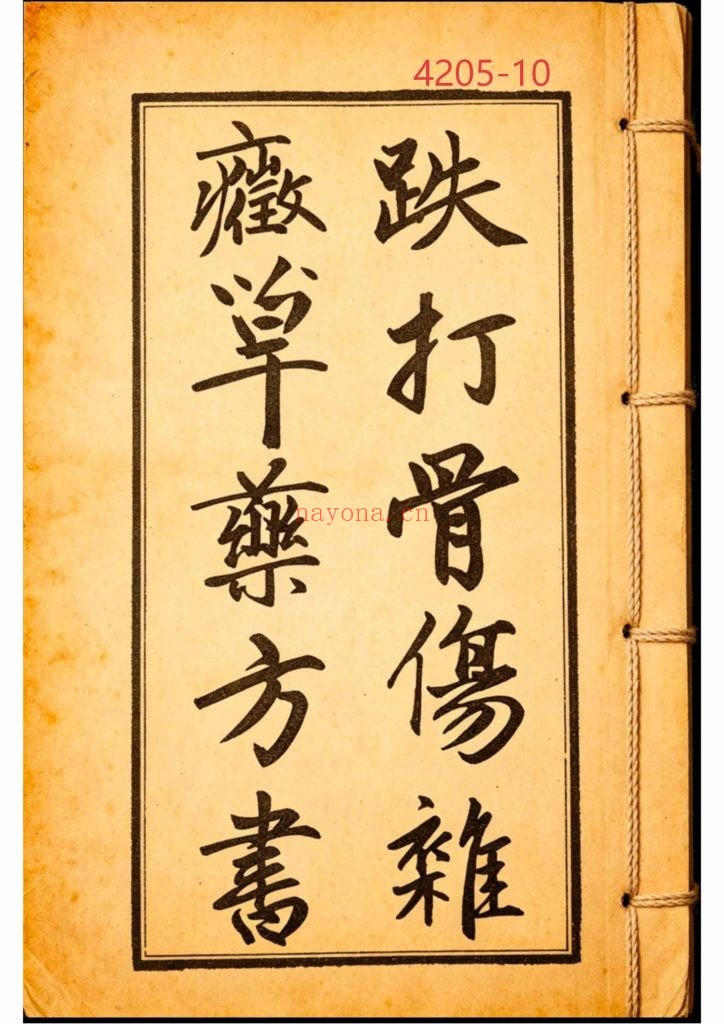 4205-10
跌打骨傷雜
癥草藥方書
nayona.cn